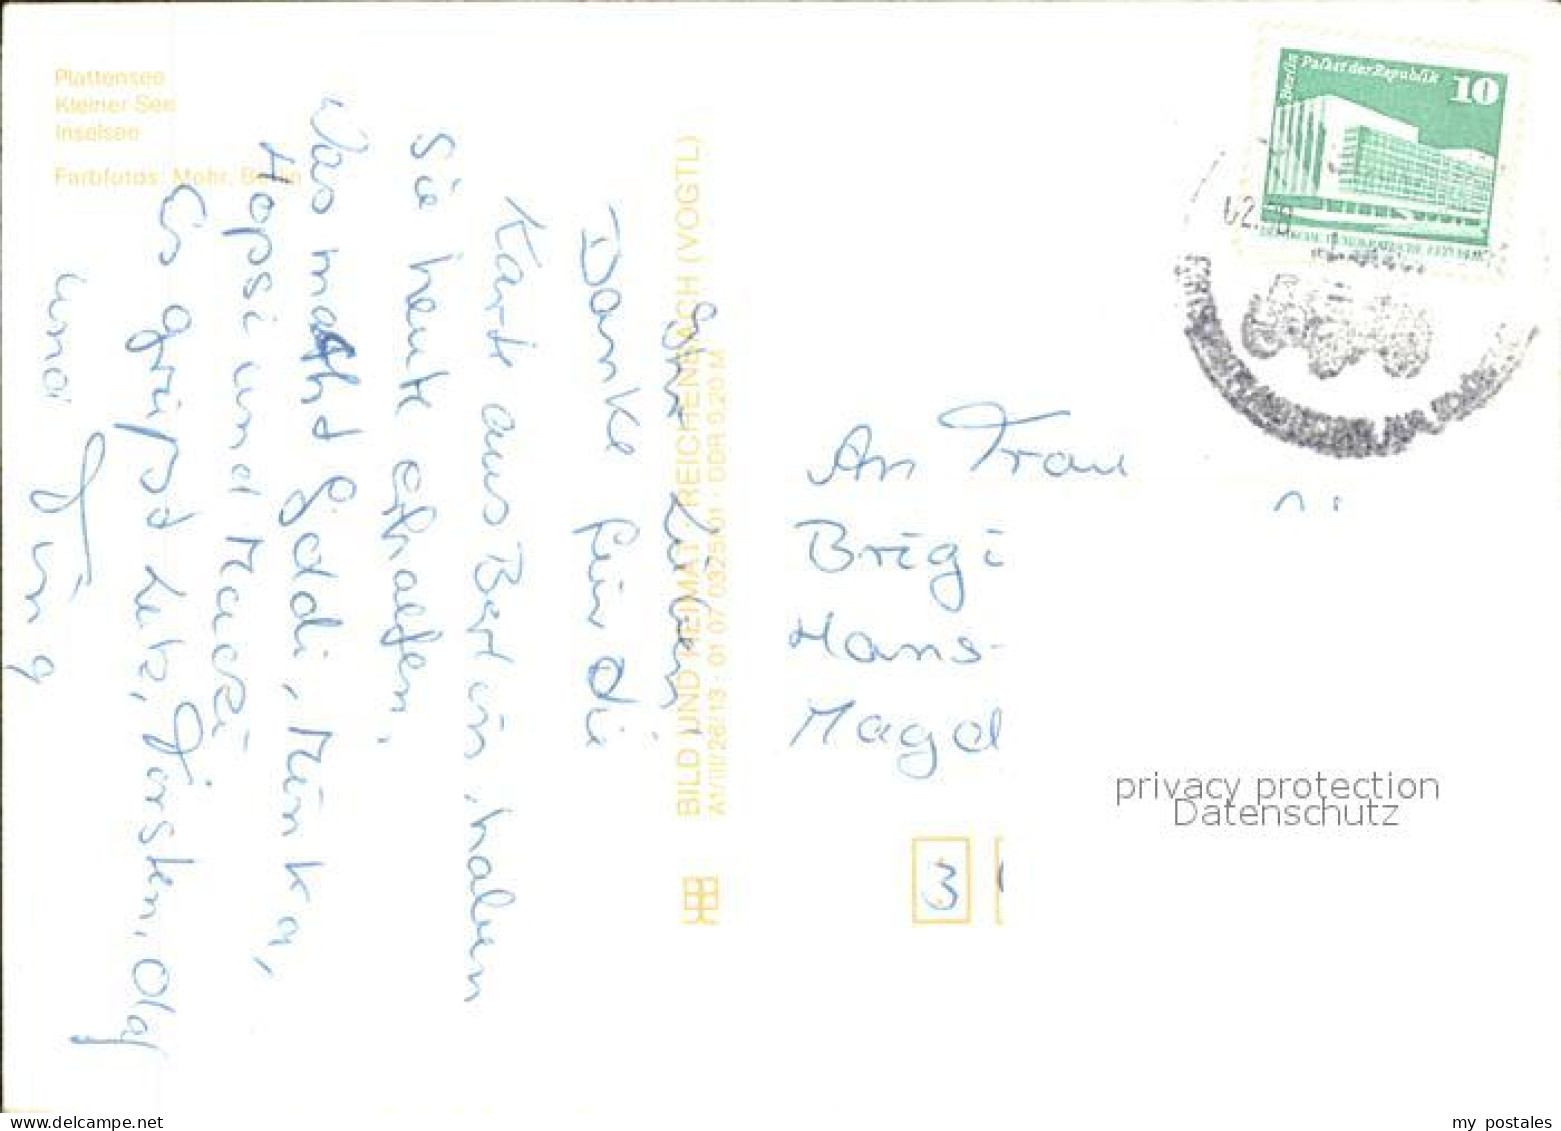 Plattensee
Kleiner See
Inselsee
Farbfotos: Mohr, Berlin
Danke für die
Karte aus Berlin, haben
Sie heute erhalten.
Was macht Goddi, Minka,
Hopsi und Mucki
Es grüßt Lutz, Torsten, Olaf
und
BILD UND HEIMAT REICHENBACH (VOGTL)
A1/III/26/13 - 01 07 0325/01 - DDR 0,20 M
Berlin Palast der Republik 10
An Frau
Brigi
Hans-
Magd
3
privacy protection
Datenschutz
my postales